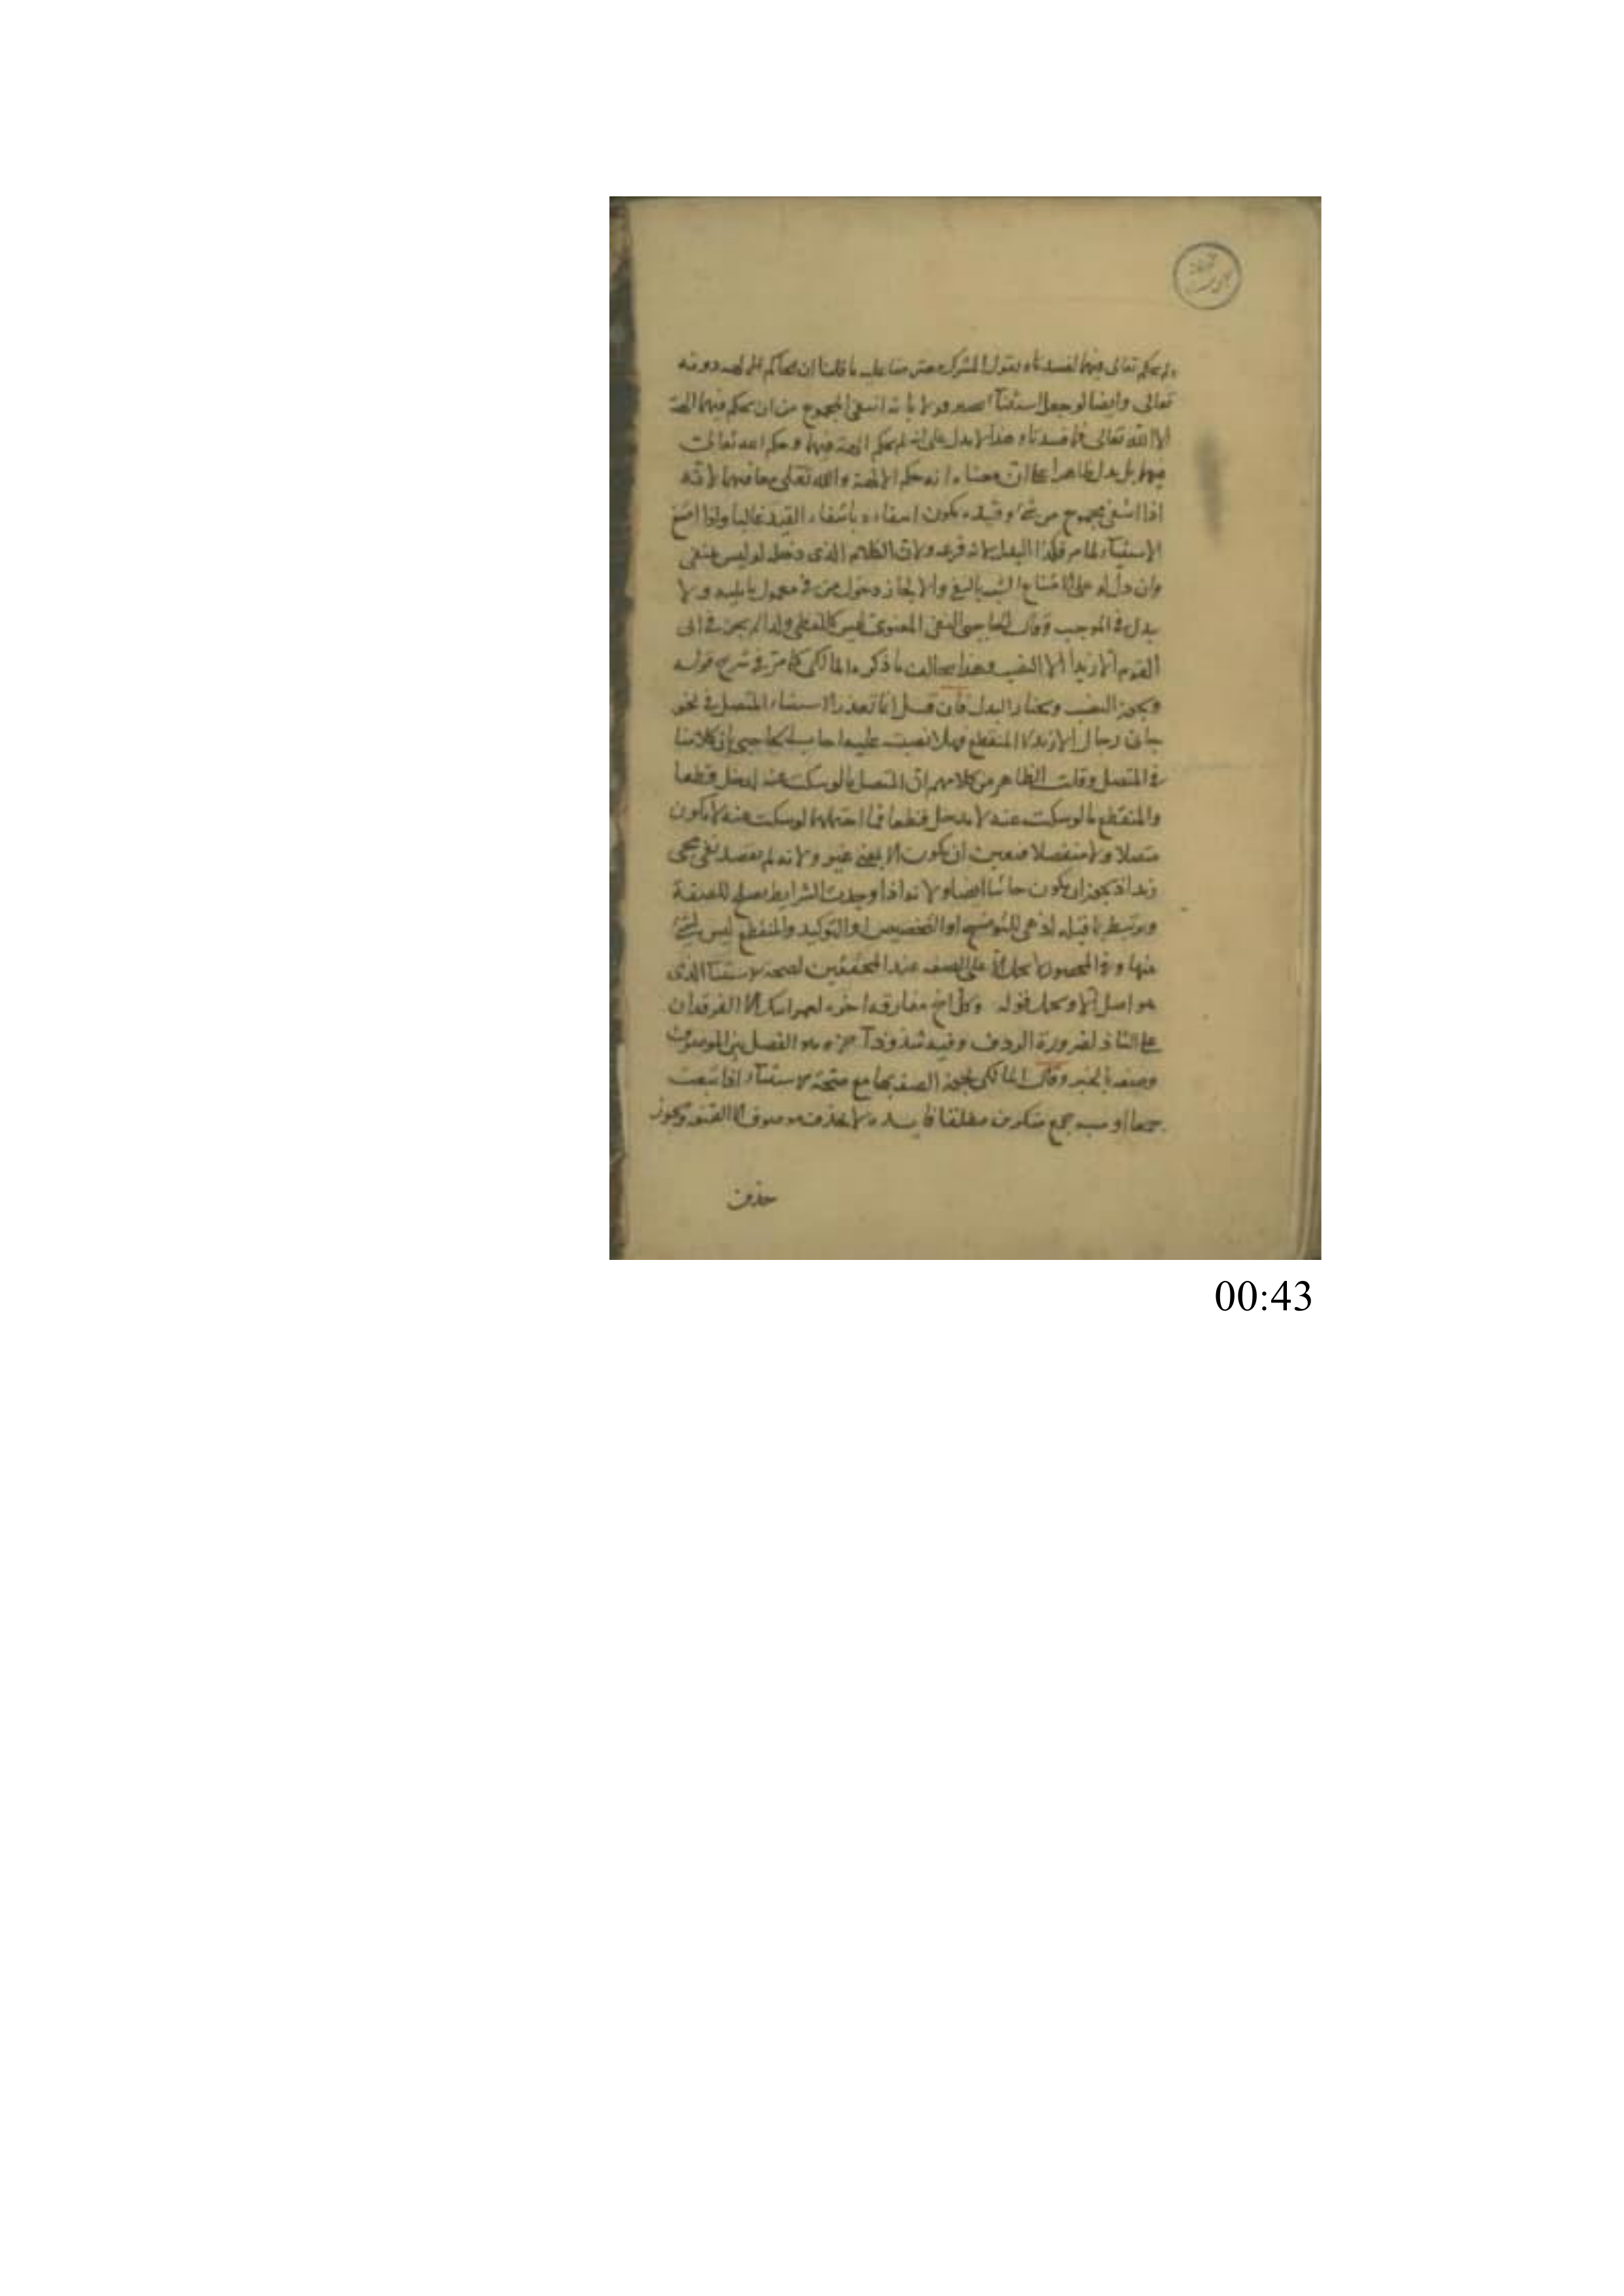 تعالى وايضا لو جعل استثناء المجموع من ان يحكم فيهما الهة
الا الله تعالى لما فسدتا وهذا لا يدل على انه لم يحكم الهة فيهما وحكم الله تعالى
فيهما بل يدل ظاهرا على ان معناه انه حكم الالهة والله تعالى معا فيهما لانه
اذا انتفى مجموع من شئ وقيده يكون انتفاءه بانتفاء القيد غالبا واذا امتنع
الاستثناء لما مر فكذا البدل لانه فرعه ولان الكلام الذى دخله لو ليس بمنفى
وان دل لو على امتناع الشئ والا لجاز دخول من في معمول ما يليه ولا
يبدل في الموجب وقال الحاجبى النفى المعنوى ليس كاللفظى ولذا لم يجز في ابى
القوم الا زيدا الا النصب وهذا يخالف ما ذكره المالكى كما مر في شرح قوله
ويجوز النصب ويختار البدل فان قيل انما تعذر الاستثناء المتصل في نحو
جاءنى رجال الا زيد لا المنقطع فهلا نصبت عليه اجاب الحاجبى بان كلامنا
في المتصل وقلت الظاهر من كلامهم ان المتصل ما لو سكت عنه لدخل قطعا
والمنقطع ما لو سكت عنه لا يدخل قطعا فما احتملهما لو سكت عنه لا يكون
متصلا ولا منفصلا فتعين ان يكون الا بمعنى غير ولانه لم يقصد نفى مجى
زيد اذ يجوز ان يكون جائيا ايضا ولانه اذا وجدت الشرايط يصلح للصفة
ويرتبط بما قبله اذ هى للتوضيح او التخصيص او التوكيد والمنقطع ليس لشئ
منها وفي المحصور لا يحمل الا على الصفة عند المحققين لصحة الاستثنا الذى
هو اصل الا ويحمل قوله وكل اخ مفارقه اخوه لعمر ابيك الا الفرقدان
على الشاذ لضرورة الردف وفيه شذوذ آخر وهو الفصل بين الموصوف
وصفته بالخبر وقال المالكى يجوز الصفة بها مع صحة الاستثناء اذا تبعت
جمعا او شبه جمع منكرين مطلقا فايده لا يحذف موصوف الا الصفة ويجوز
حذف
00:43